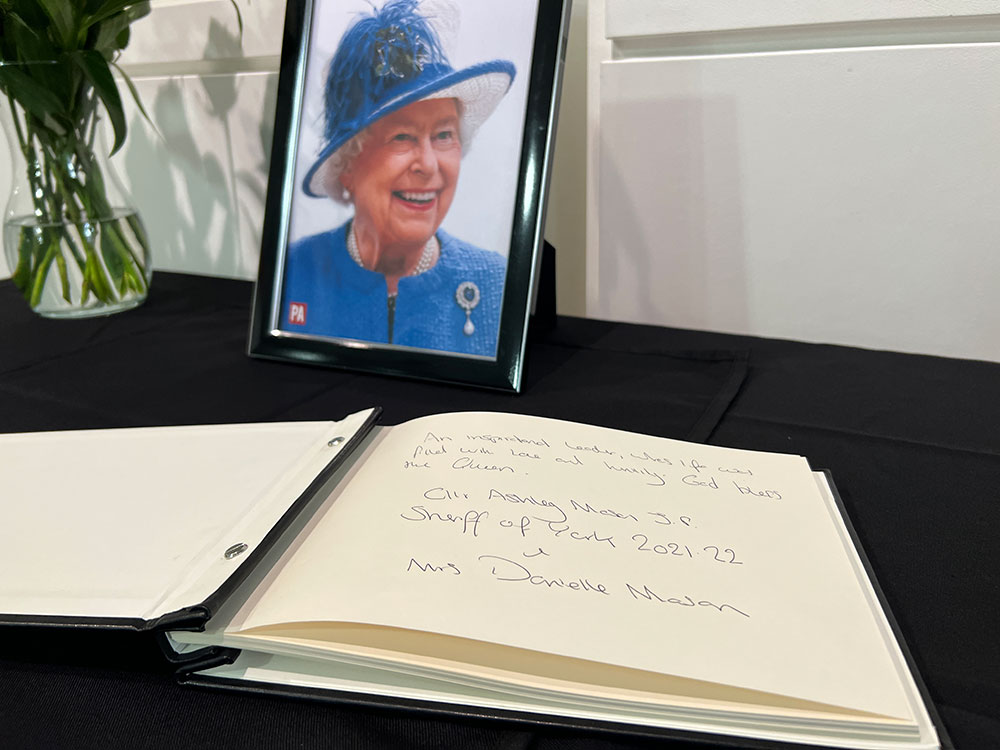 PA
An inspirational Leader, who's life was
filled with love and humility. God bless
the Queen.
Cllr Ashley Mason J.P.
Sheriff of York 2021-22
&
Mrs Danielle Mason